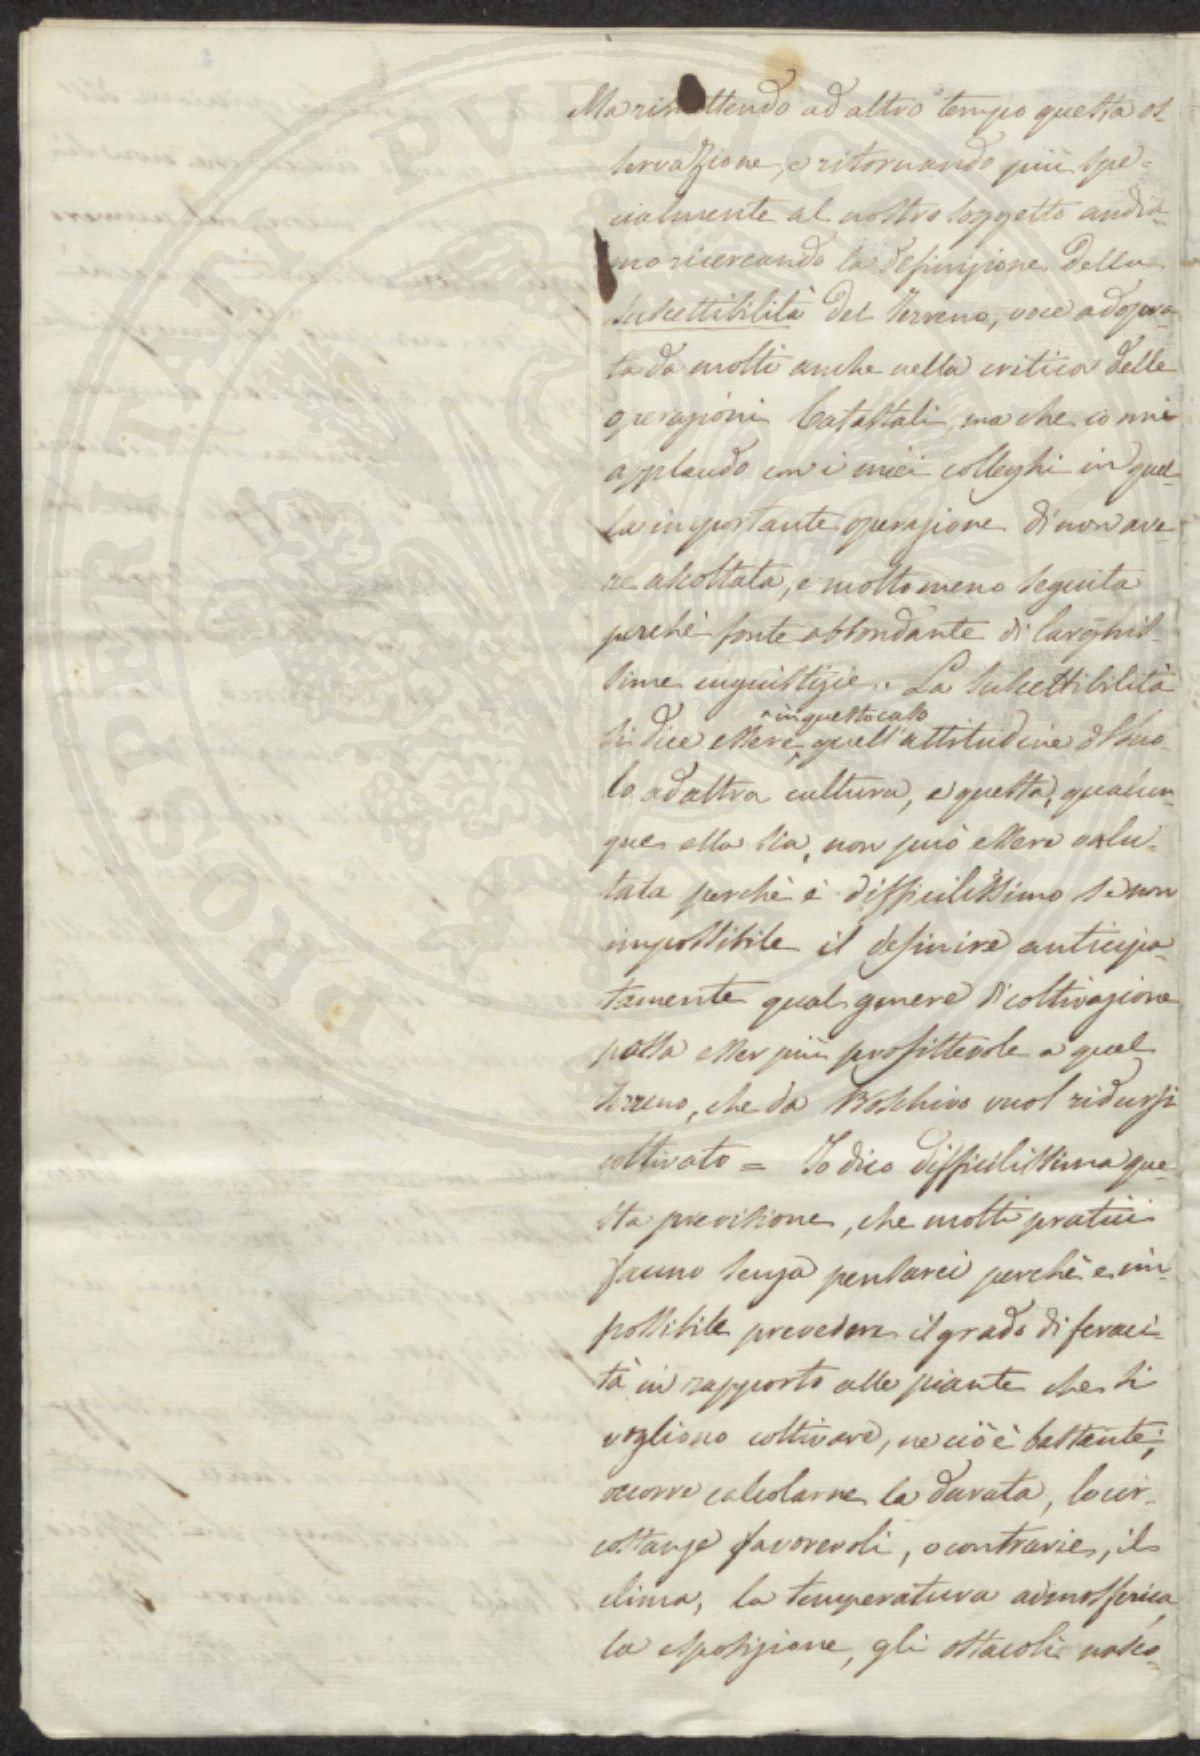 Ma rimettendo ad altro tempo questa os-
servazione, e ritornando più spe-
cialmente al nostro soggetto andia-
mo ricercando la definizione della
suscettibilità del terreno, voce adopra-
ta da molti anche nella critica delle
operazioni Catastali, ma che io mi
applaudo con i miei colleghi in quel-
la importante operazione di non ave-
re ascoltata, e molto meno seguita
perchè fonte abbondante di larghis-
sime ingiustizie. La suscettibilità
in questo caso
si dice essere quell'attitudine d'suo-
lo ad altra cultura, e questa, qualun-
que ella sia, non può essere valu-
tata perchè è difficilissimo se non
impossibile il definire anticipa-
tamente qual genere di coltivazione
possa esser più profittevole a quel
terreno, che da Boschivo vuol ridursi
coltivato = Io dico difficilissima que-
sta previsione, che molti pratici
fanno senza pensarci perchè è im-
possibile prevedere il grado di feraci-
tà in rapporto alle piante che si
vogliono coltivare, ne ciò è bastante;
occorre calcolarne la durata, le cir-
costanze favorevoli, o contrarie, il
clima, la temperatura admosferica,
la esposizione, gli ostacoli nasco-
PROSPERITATI PVBLICAE